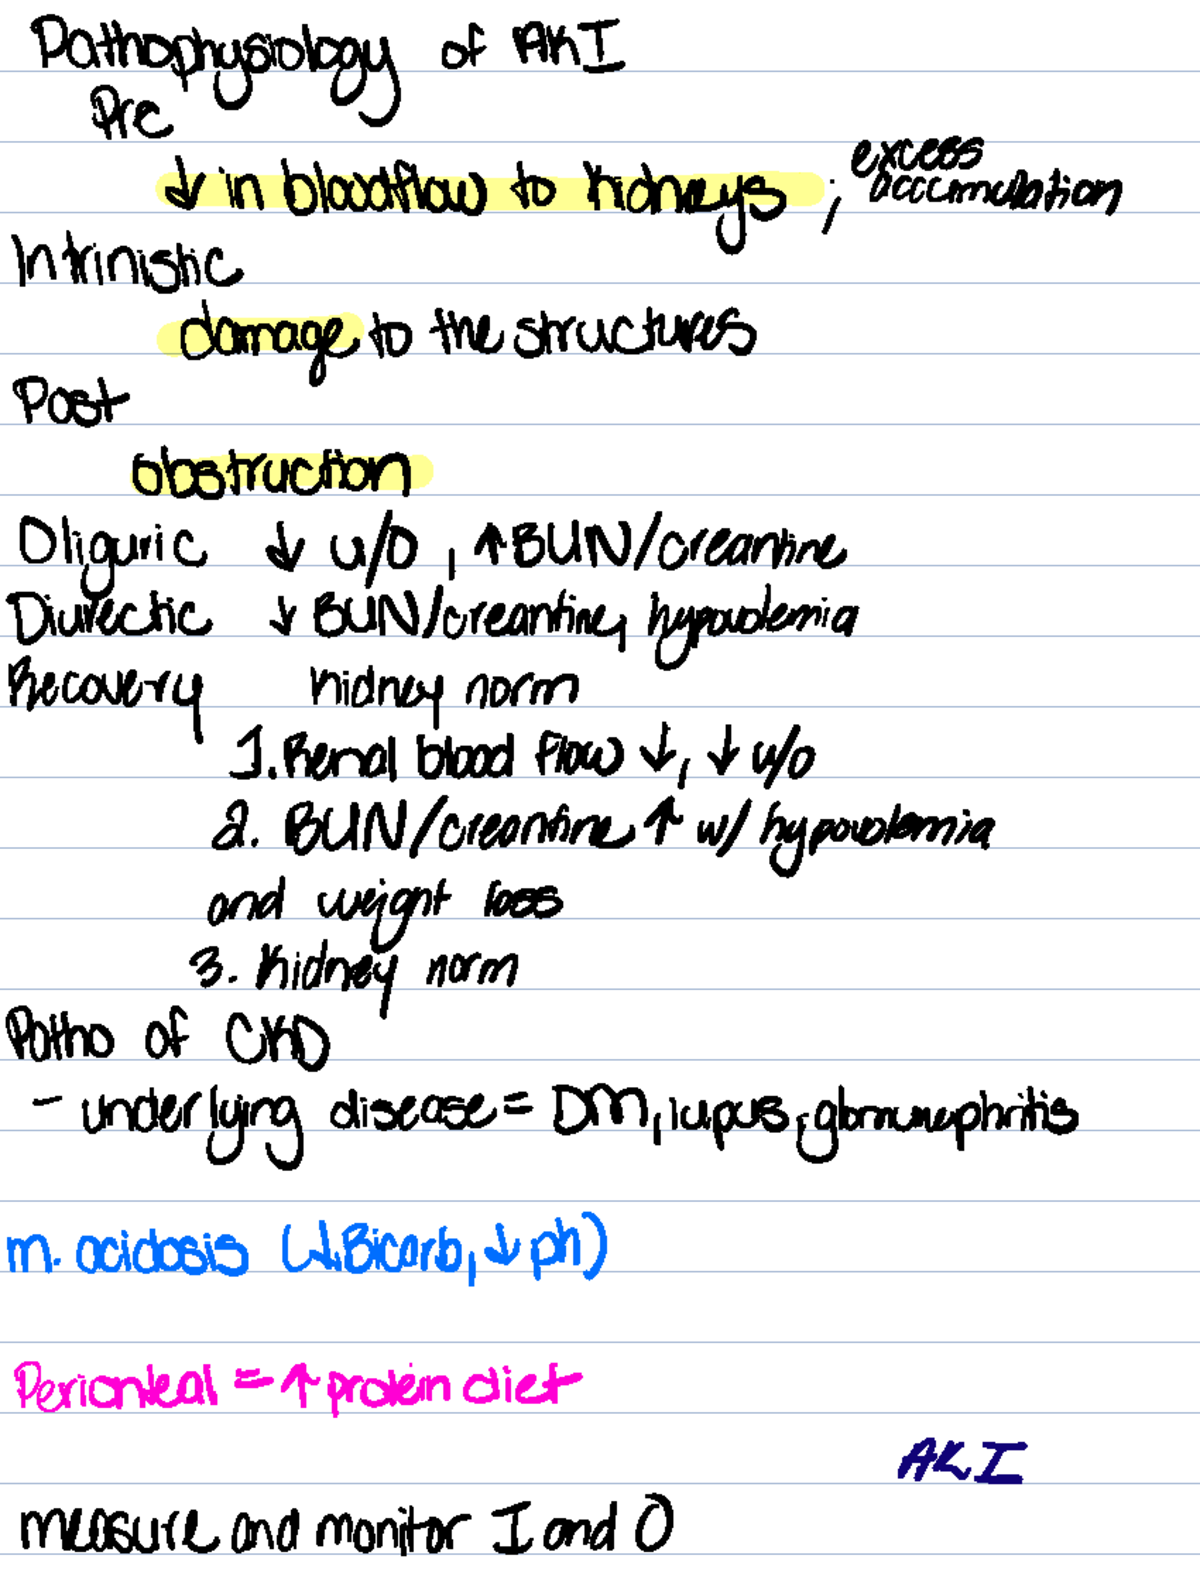 Pathophysiology of AKI
Pre
↓ in bloodflow to kidneys ; excess accumulation
Intrinistic
damage to the structures
Post
obstruction
Oliguric ↓ u/o , ↑BUN/creantine
Diurectic ↓ BUN/creantine, hypovolemia
Recovery kidney norm
1. Renal blood flow ↓, ↓ u/o
2. BUN/creantine ↑ w/ hypovolemia
and weight loss
3. Kidney norm
Patho of CKD
- underlying disease = DM, lupus, glomunephritis
m. acidosis (↓Bicarb, ↓ ph)
Perionteal = ↑ protein diet
AKI
measure and monitor I and O